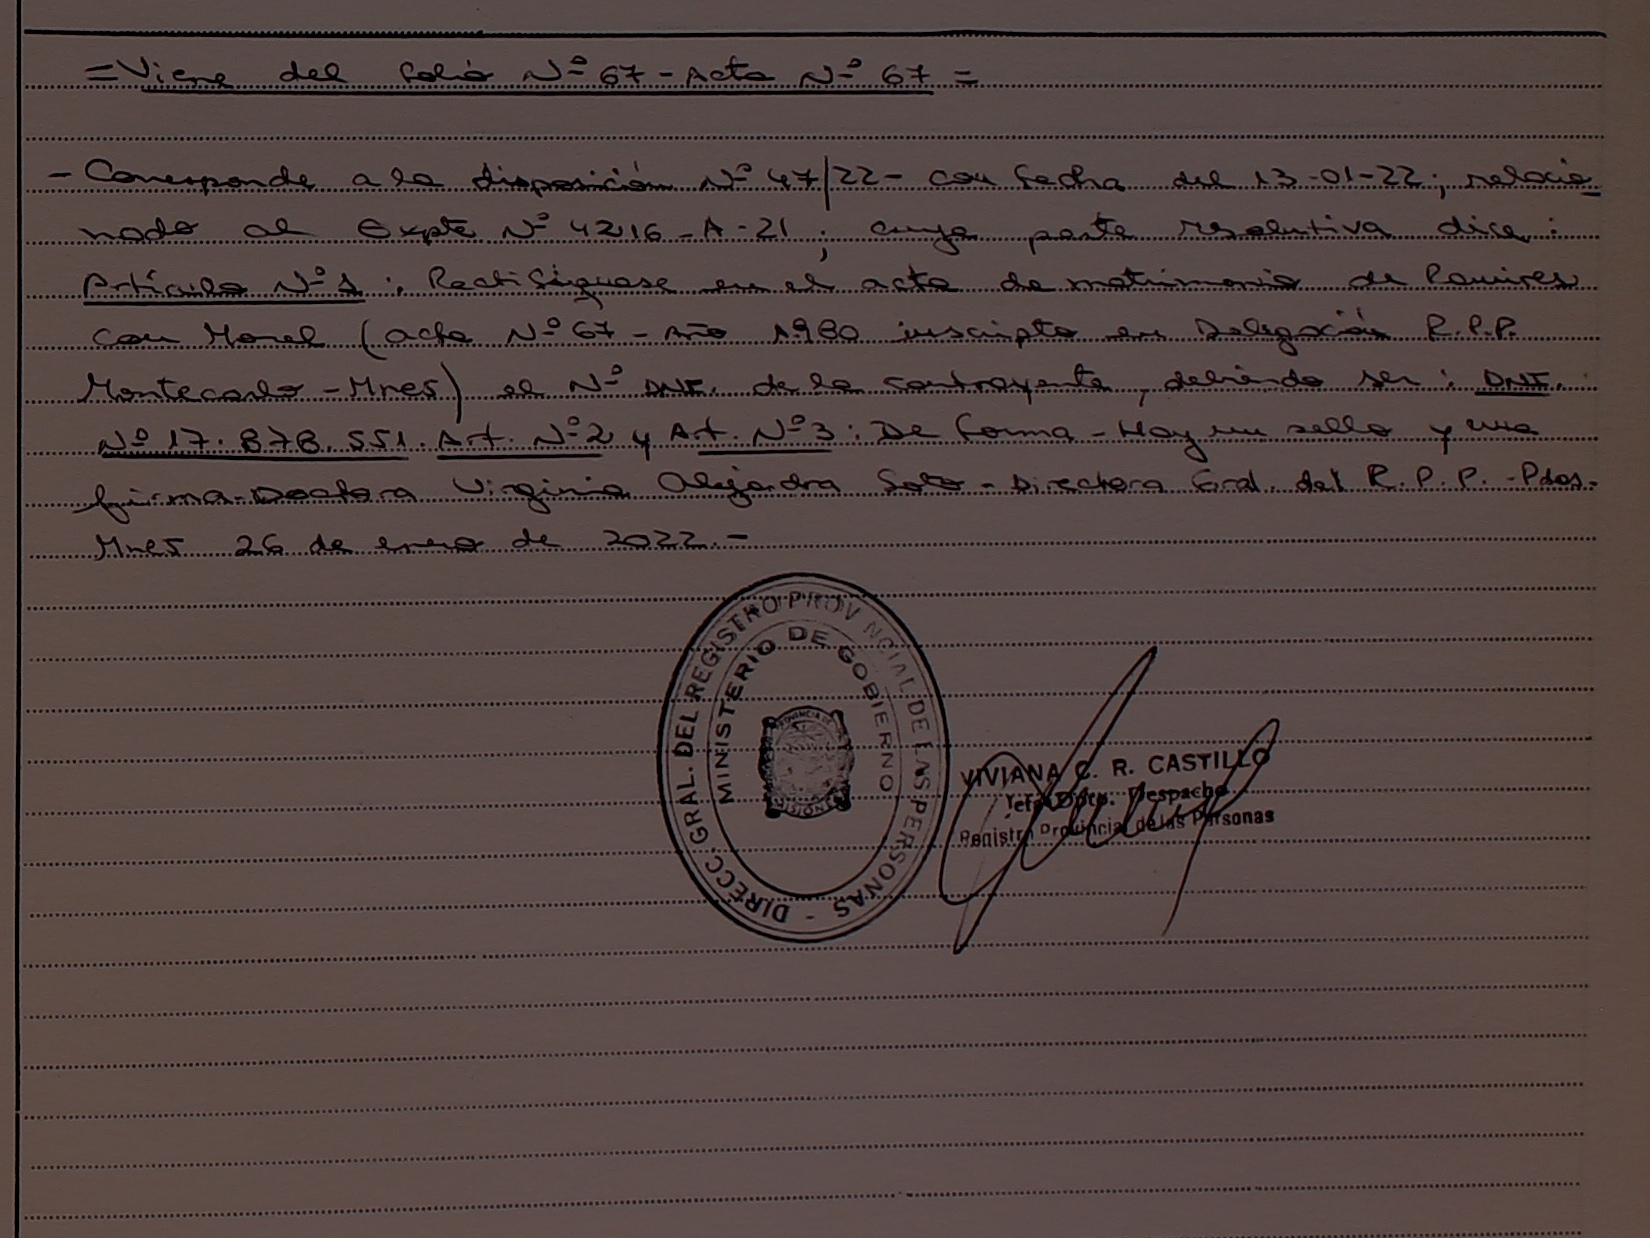 =Viene del folio Nº 67 - Acta Nº 67 =
- Corresponde a la disposición Nº 47/22- con fecha del 13-01-22; relacio-
nado al Expte Nº 4216-A-21; cuya parte resolutiva dice:
Artículo Nº 1: Rectifíquese en el acta de matrimonio de Ramires
con Morel (acta Nº 67 - Año 1980 inscripto en Delegación R.P.P.
Montecarlo - Mnes) el Nº DNI. de la contrayente, debiendo ser: DNI.
Nº 17.878.551. Art. Nº 2 y Art. Nº 3: De forma - Hay un sello y una
firma - Doctora Virginia Alejandra Soto - Directora Gral. del R.P.P. - Pdas.
Mnes 26 de enero de 2022.-
DIRECC. GRAL. DEL REGISTRO PROVINCIAL DE LAS PERSONAS -
MINISTERIO DE GOBIERNO
PROVINCIA DE
MISIONES
VIVIANA C. R. CASTILLO
Jefa Dpto. Despacho
Registro Provincial de las Personas